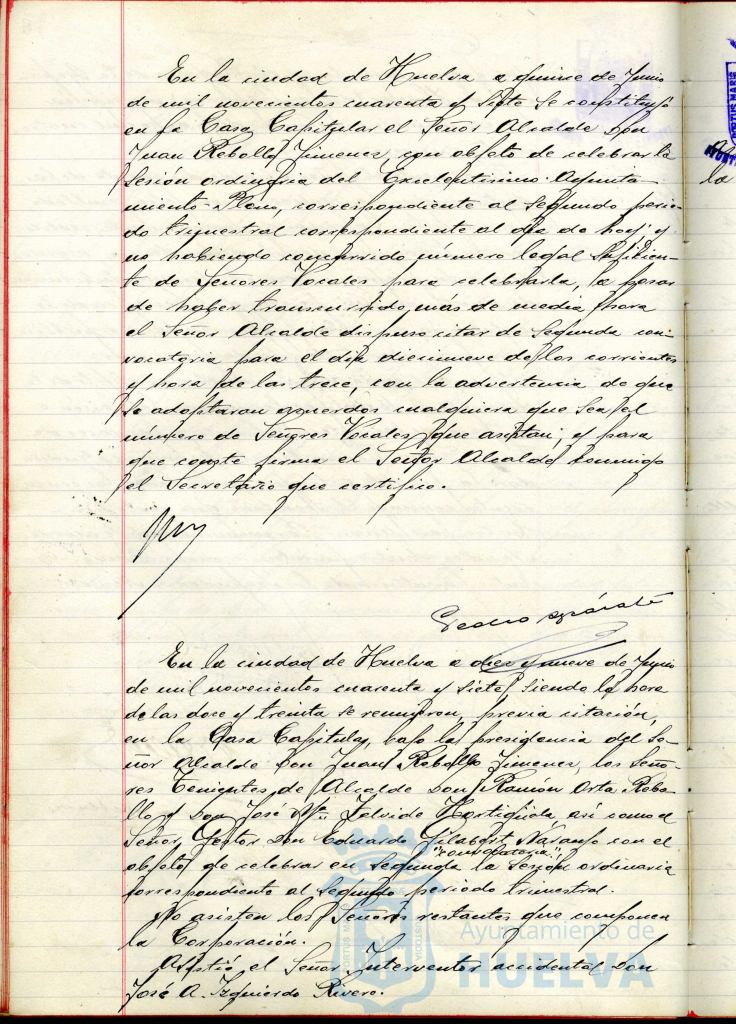 En la ciudad de Huelva a quince de Junio
de mil novecientos cuarenta y siete se constituyó
en la Casa Capitular el Señor Alcalde Don
Juan Rebollo Jimenez, con objeto de celebrar la
sesión ordinaria del Excelentisimo Ayunta-
miento-Pleno, correspondiente al segundo perio-
do trimestral correspondiente al dia de hoy; y
no habiendo concurrido número legal suficien-
te de Señores Vocales para celebrarla, a pesar
de haber transcurrido más de media hora
el Señor Alcalde dispuso citar de segunda con-
vocatoria para el dia diecinueve de los corrientes
y hora de las trece, con la advertencia de que
se adoptaran acuerdos cualquiera que sea el
número de Señores Vocales que asistan; y para
que conste firma el Señor Alcalde conmigo
el Secretario que certifico.
Pedro
En la ciudad de Huelva a diez y nueve de Junio
de mil novecientos cuarenta y siete, siendo la hora
de las doce y treinta se reunieron, previa citación,
en la Casa Capitular, bajo la presidencia del Se-
ñor Alcalde Don Juan Rebollo Jimenez, los Seño-
res Tenientes de Alcalde Don Ramón Orta Rebo-
llo y Don José Mª. Hortigüela así como el
Señor Gestor Don Eduardo Gilabert Naranjo con el
"convocatoria"
objeto de celebrar en segunda la sesión ordinaria
correspondiente al segundo periodo trimestral.
No asisten los Señores restantes que componen
la Corporación.
Asistió el Señor Interventor accidental Don
José A. Izquierdo Rivero.
la
Ayuntamiento de
HUELVA